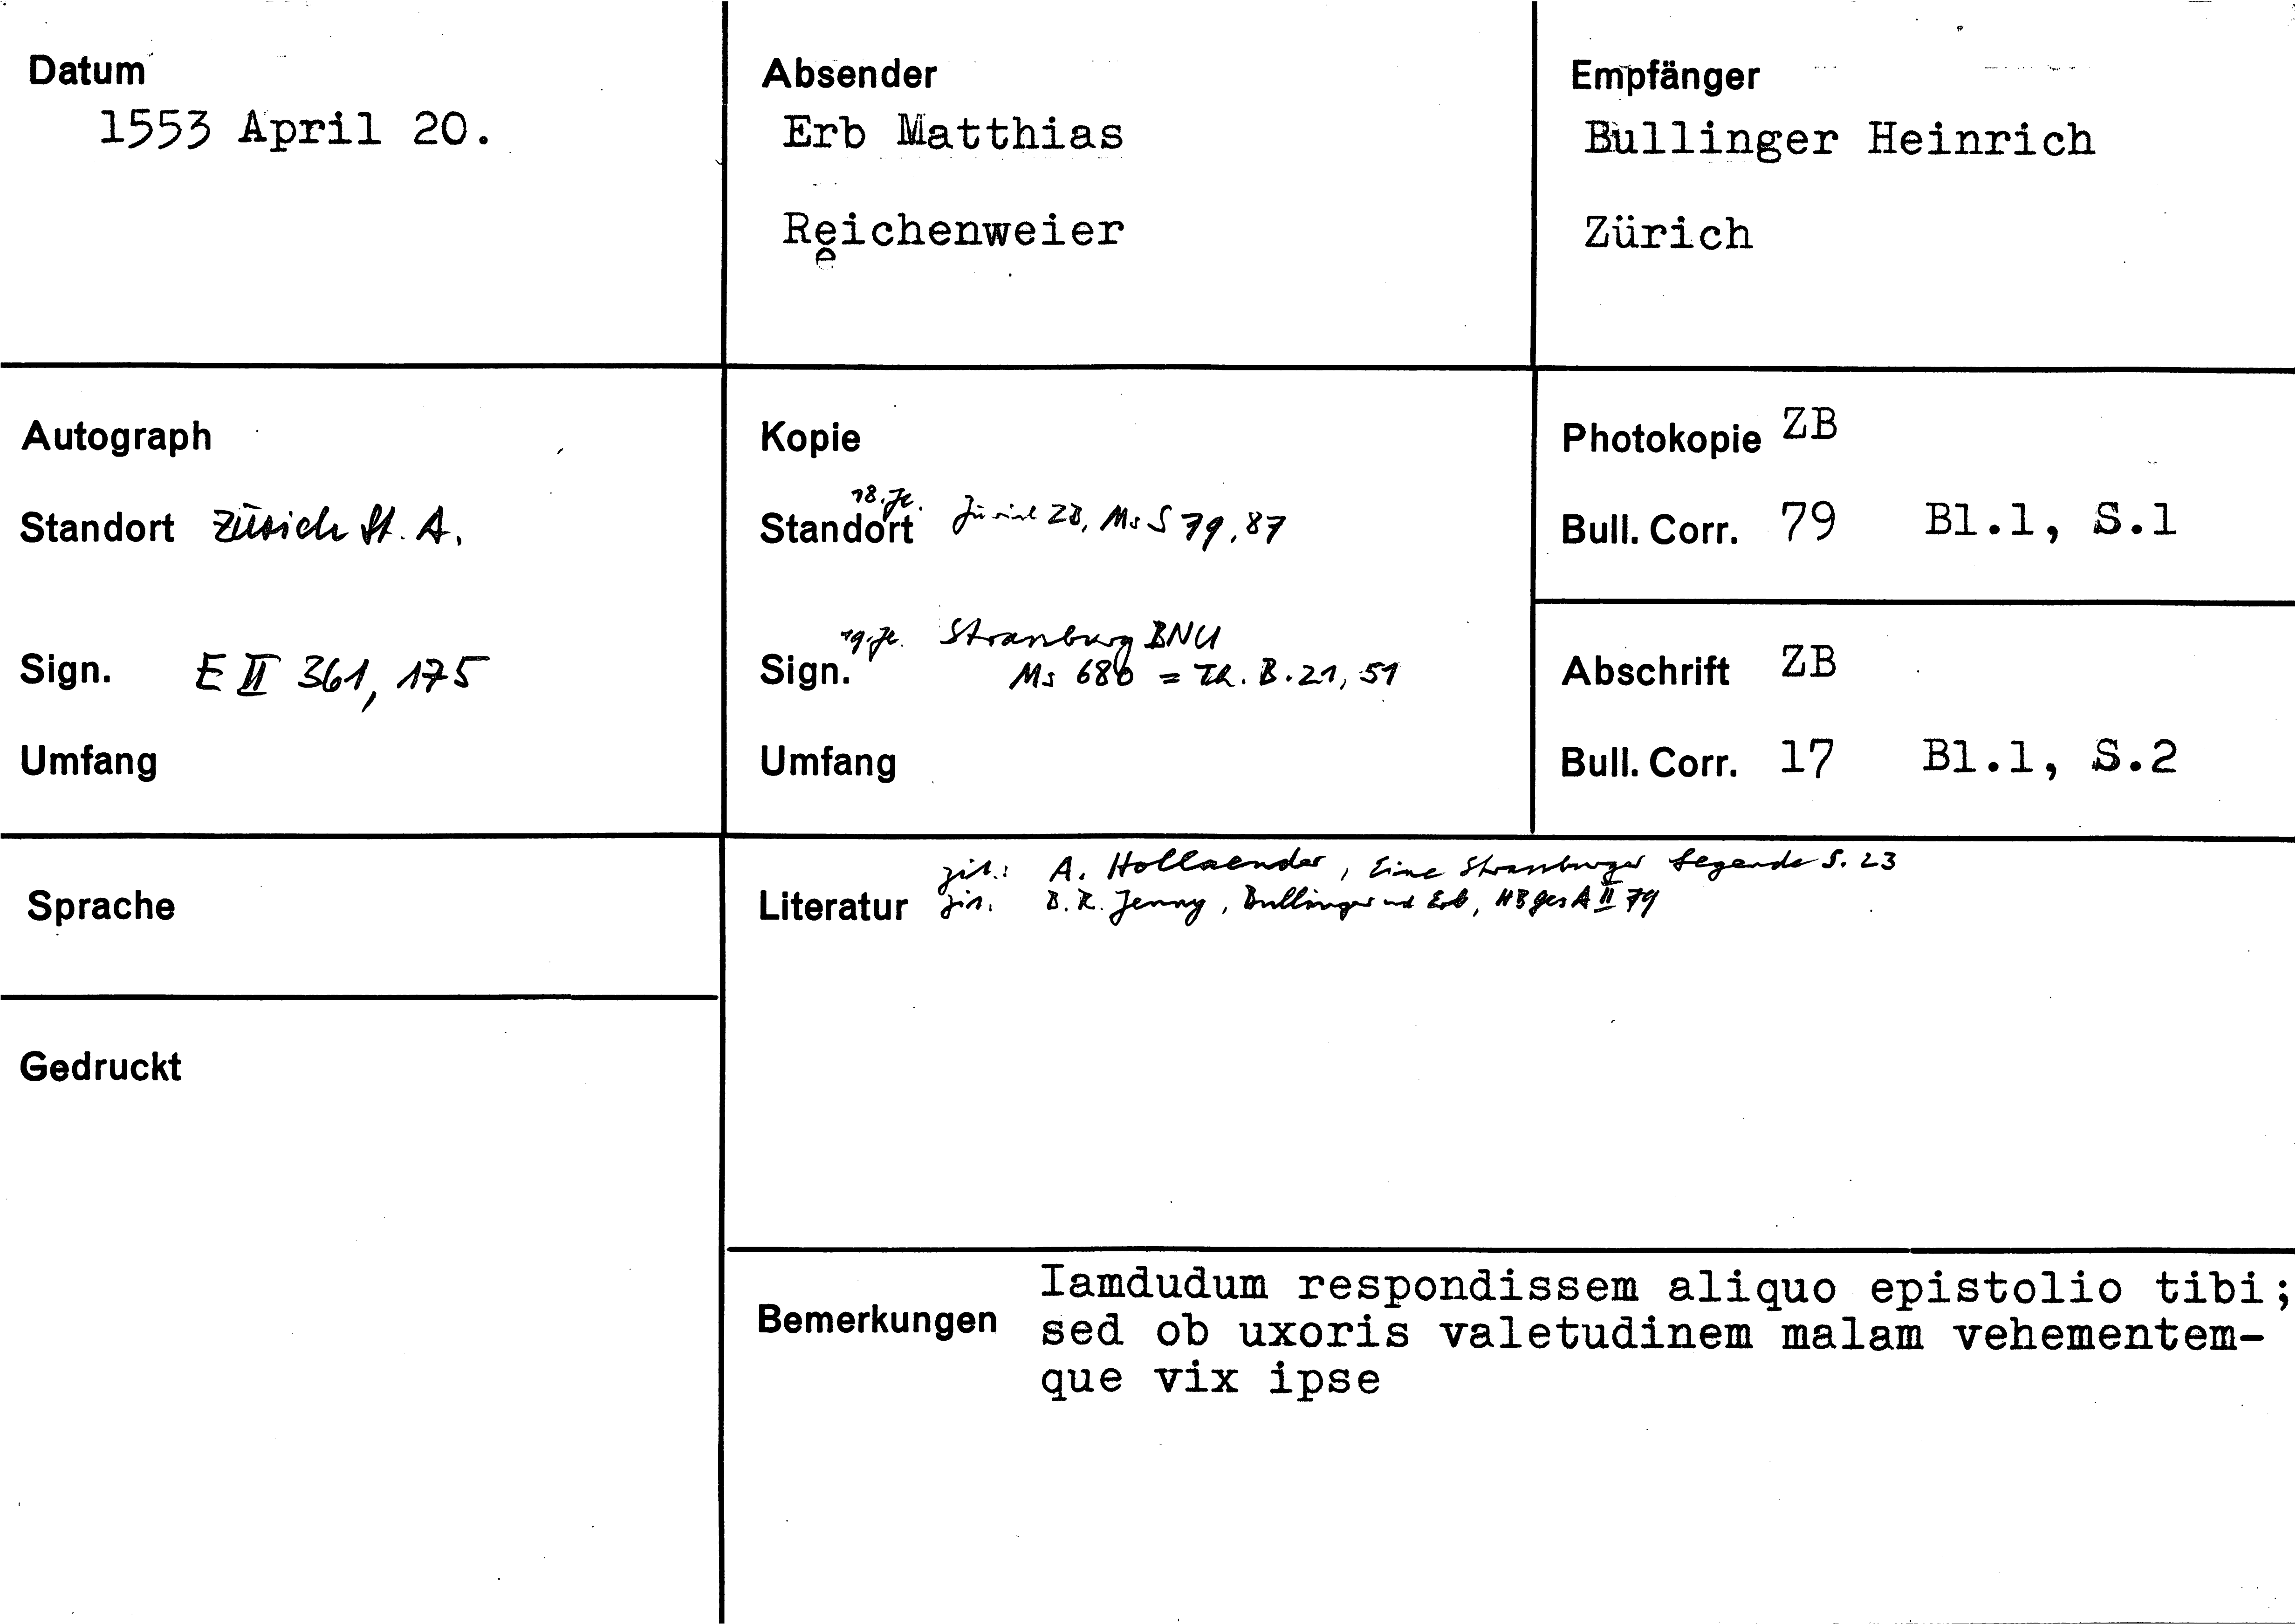 Datum
1553 April 20.
Absender
Erb Matthias
Reichenweier
e
Empfänger
Bullinger Heinrich
Zürich
Autograph
Standort Zürich St. A.
Sign. E II 361, 175
Umfang
Kopie
18. Jh.
Standort Zürich ZB, Ms S 79, 87
19. Jh. Strassburg BNU
Sign. Ms 680 = Th. B. 21, 51
Umfang
Photokopie ZB
Bull. Corr. 79 Bl.1, S.1
Abschrift ZB
Bull. Corr. 17 Bl.1, S.2
Sprache
Gedruckt
zit.: A. Hollaender, Eine Strassburger Legende S. 23
Literatur zit. B. R. Jenny, Bullinger und Erb, HBGesA II 79
Bemerkungen
Iamdudum respondissem aliquo epistolio tibi;
sed ob uxoris valetudinem malam vehementem-
que vix ipse